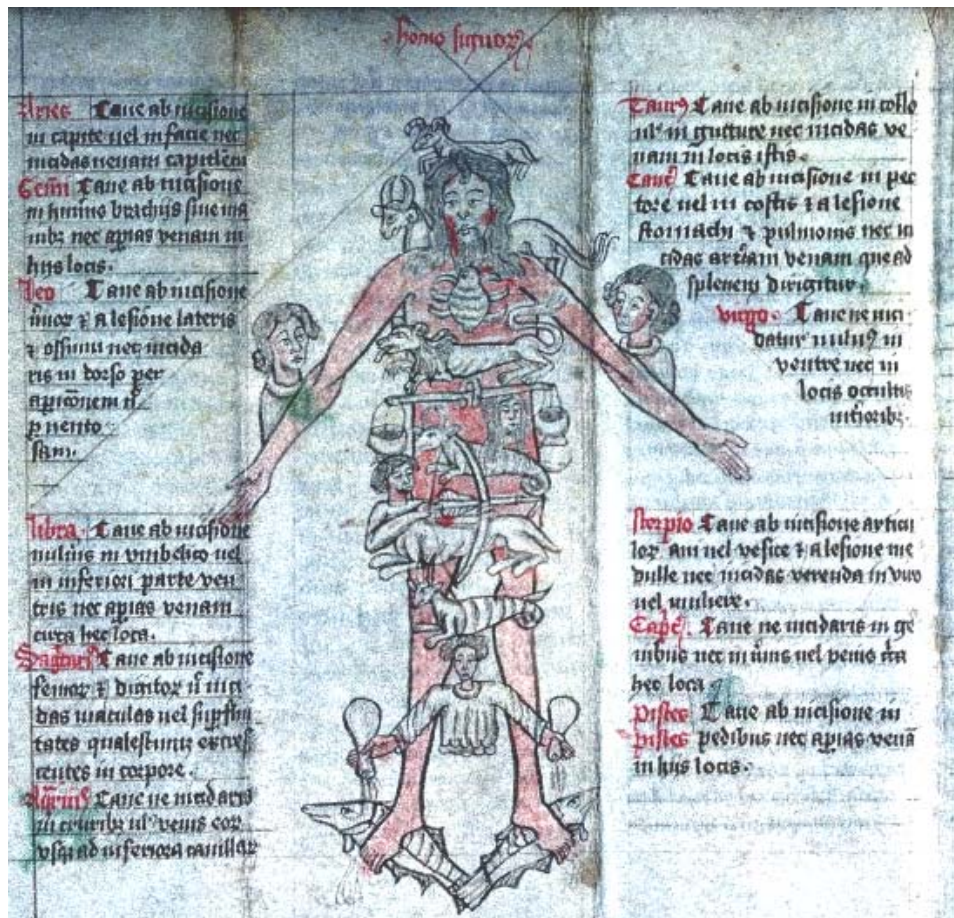 homo signorum
Aries Caue ab incisione
in capite uel in facie nec
incidas uenam capitalem
Gemi Caue ab incisione
in humris brachijs siue ma
nibz nec apias venam in
hijs locis.
Leo Caue ab incisione
& a lesione lateris
& ossium nec incida
ris in dorso per
uento
sam.
libra Caue ab incisione
uulneris in vmbelico uel
in inferiori parte uen
tris nec apias venam
circa hec loca.
Caue ab incisione
femor & digitor inci
das maculas uel
tates excres
centes in corpore.
Caue ne incidaris
in cruribz ul venis eor
vsqz ad inferiora cauillar
Taurus Caue ab incisione in collo
ul in gutture nec incidas ve
nam in locis istis.
Cancer Caue ab incisione in pec
tore uel in costis & a lesione
stomachi & pulmonis nec in
cidas venam que ad
splenem dirigitur
virgo. Caue ne inci
datur in
ventre nec in
locis occultis
Scorpio Caue ab incisione
uel vesice & a lesione me
dulle nec incidas verenda in viro
uel muliere.
Capc. Caue ne incidaris in ge
nibus nec in uel
hec loca
Pisces Caue ab incisione in
pisces pedibus nec apias vena
in hijs locis.